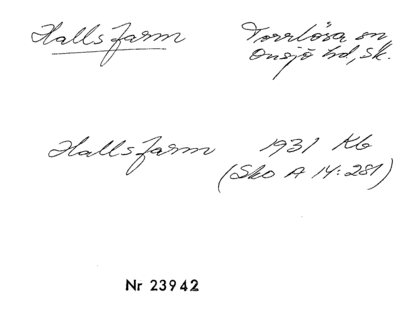 Hallsfarm Torrlösa sn,
Onsjö hd, Sk.
Hallsfarm 1931 Kb
(Sko A 14:281)
Nr 23942